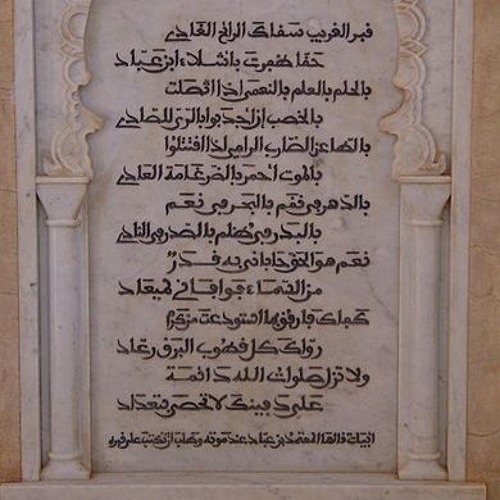 قبر الغريب سقاك الرائح الغادي
حقا ظفرت بأشلاء ابن عباد
بالحلم بالعلم بالنعمى إذا اتصلت
بالخصب إن أجدبوا بالري للصادي
بالطاعن الضارب الرامي إذا اقتتلوا
بالموت أحمر بالضرغامة العادي
بالدهر في نقم بالبحر في نعم
بالبدر في ظلم بالصدر في النادي
نعم هو الحق حاباني به قدر
من السماء فوافاني لميعاد
كفاك فارفق بما استودعت من كرم
رواك كل قطوب البرق رعاد
ولا تزل صلوات الله دائمة
على دفينك لا تحصى بتعداد
ابيات قالها المعتمد بن عباد عند موته وطلب أن تكتب على قبره